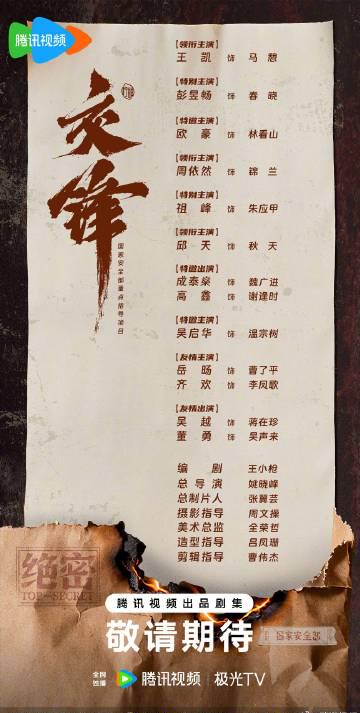 腾讯视频
交锋
国家安全部重点指导项目
【领衔主演】
王凯 饰 马慜
【特别主演】
彭昱畅 饰 春晓
【特邀主演】
欧豪 饰 林看山
【领衔主演】
周依然 饰 锦兰
【特别主演】
祖峰 饰 朱应甲
【领衔主演】
邱天 饰 秋天
【特邀出演】
成泰燊 饰 魏广进
高鑫 饰 谢逢时
【特邀主演】
吴启华 饰 温宗树
【友情主演】
岳旸 饰 曹了平
齐欢 饰 李凤歌
【友情出演】
吴越 饰 蒋在珍
董勇 饰 吴声来
编剧 王小枪
总导演 姚晓峰
总制片人 张翼芸
摄影指导 周文操
美术总监 全荣哲
造型指导 吕凤珊
剪辑指导 曹伟杰
绝密
TOP-SECRET
腾讯视频出品剧集
敬请期待
国家安全部
全网独播 腾讯视频 极光TV